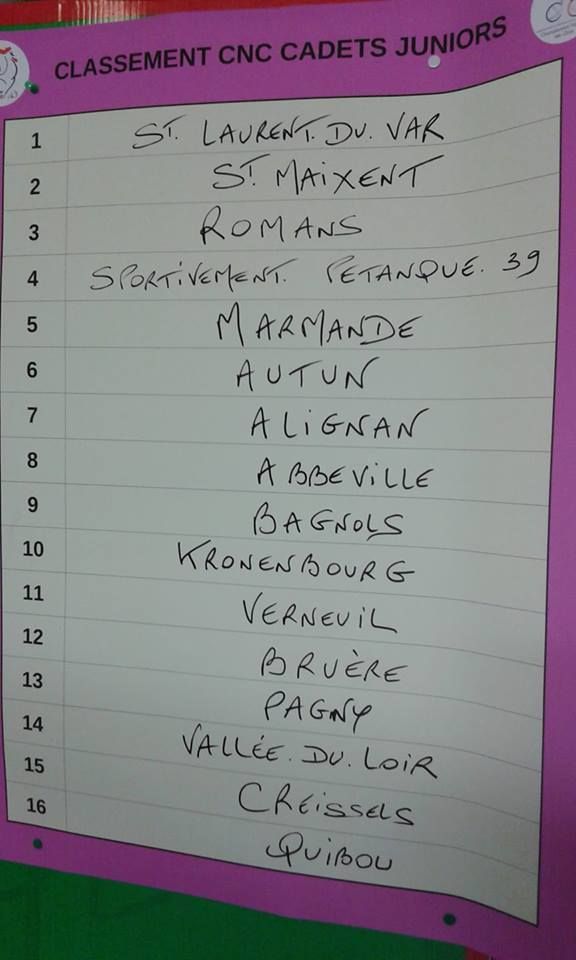 CLASSEMENT CNC CADETS JUNIORS
1 ST. LAURENT. DU. VAR
2 ST. MAIXENT
3 ROMANS
4 SPORTIVEMENT. PETANQUE. 39
5 MARMANDE
6 AUTUN
7 ALIGNAN
8 ABBEVILLE
9 BAGNOLS
10 KRONENBOURG
11 VERNEUIL
12 BRUÈRE
13 PAGNY
14 VALLÉE. DU. LOIR
15 CREISSELS
16 QUIBOU